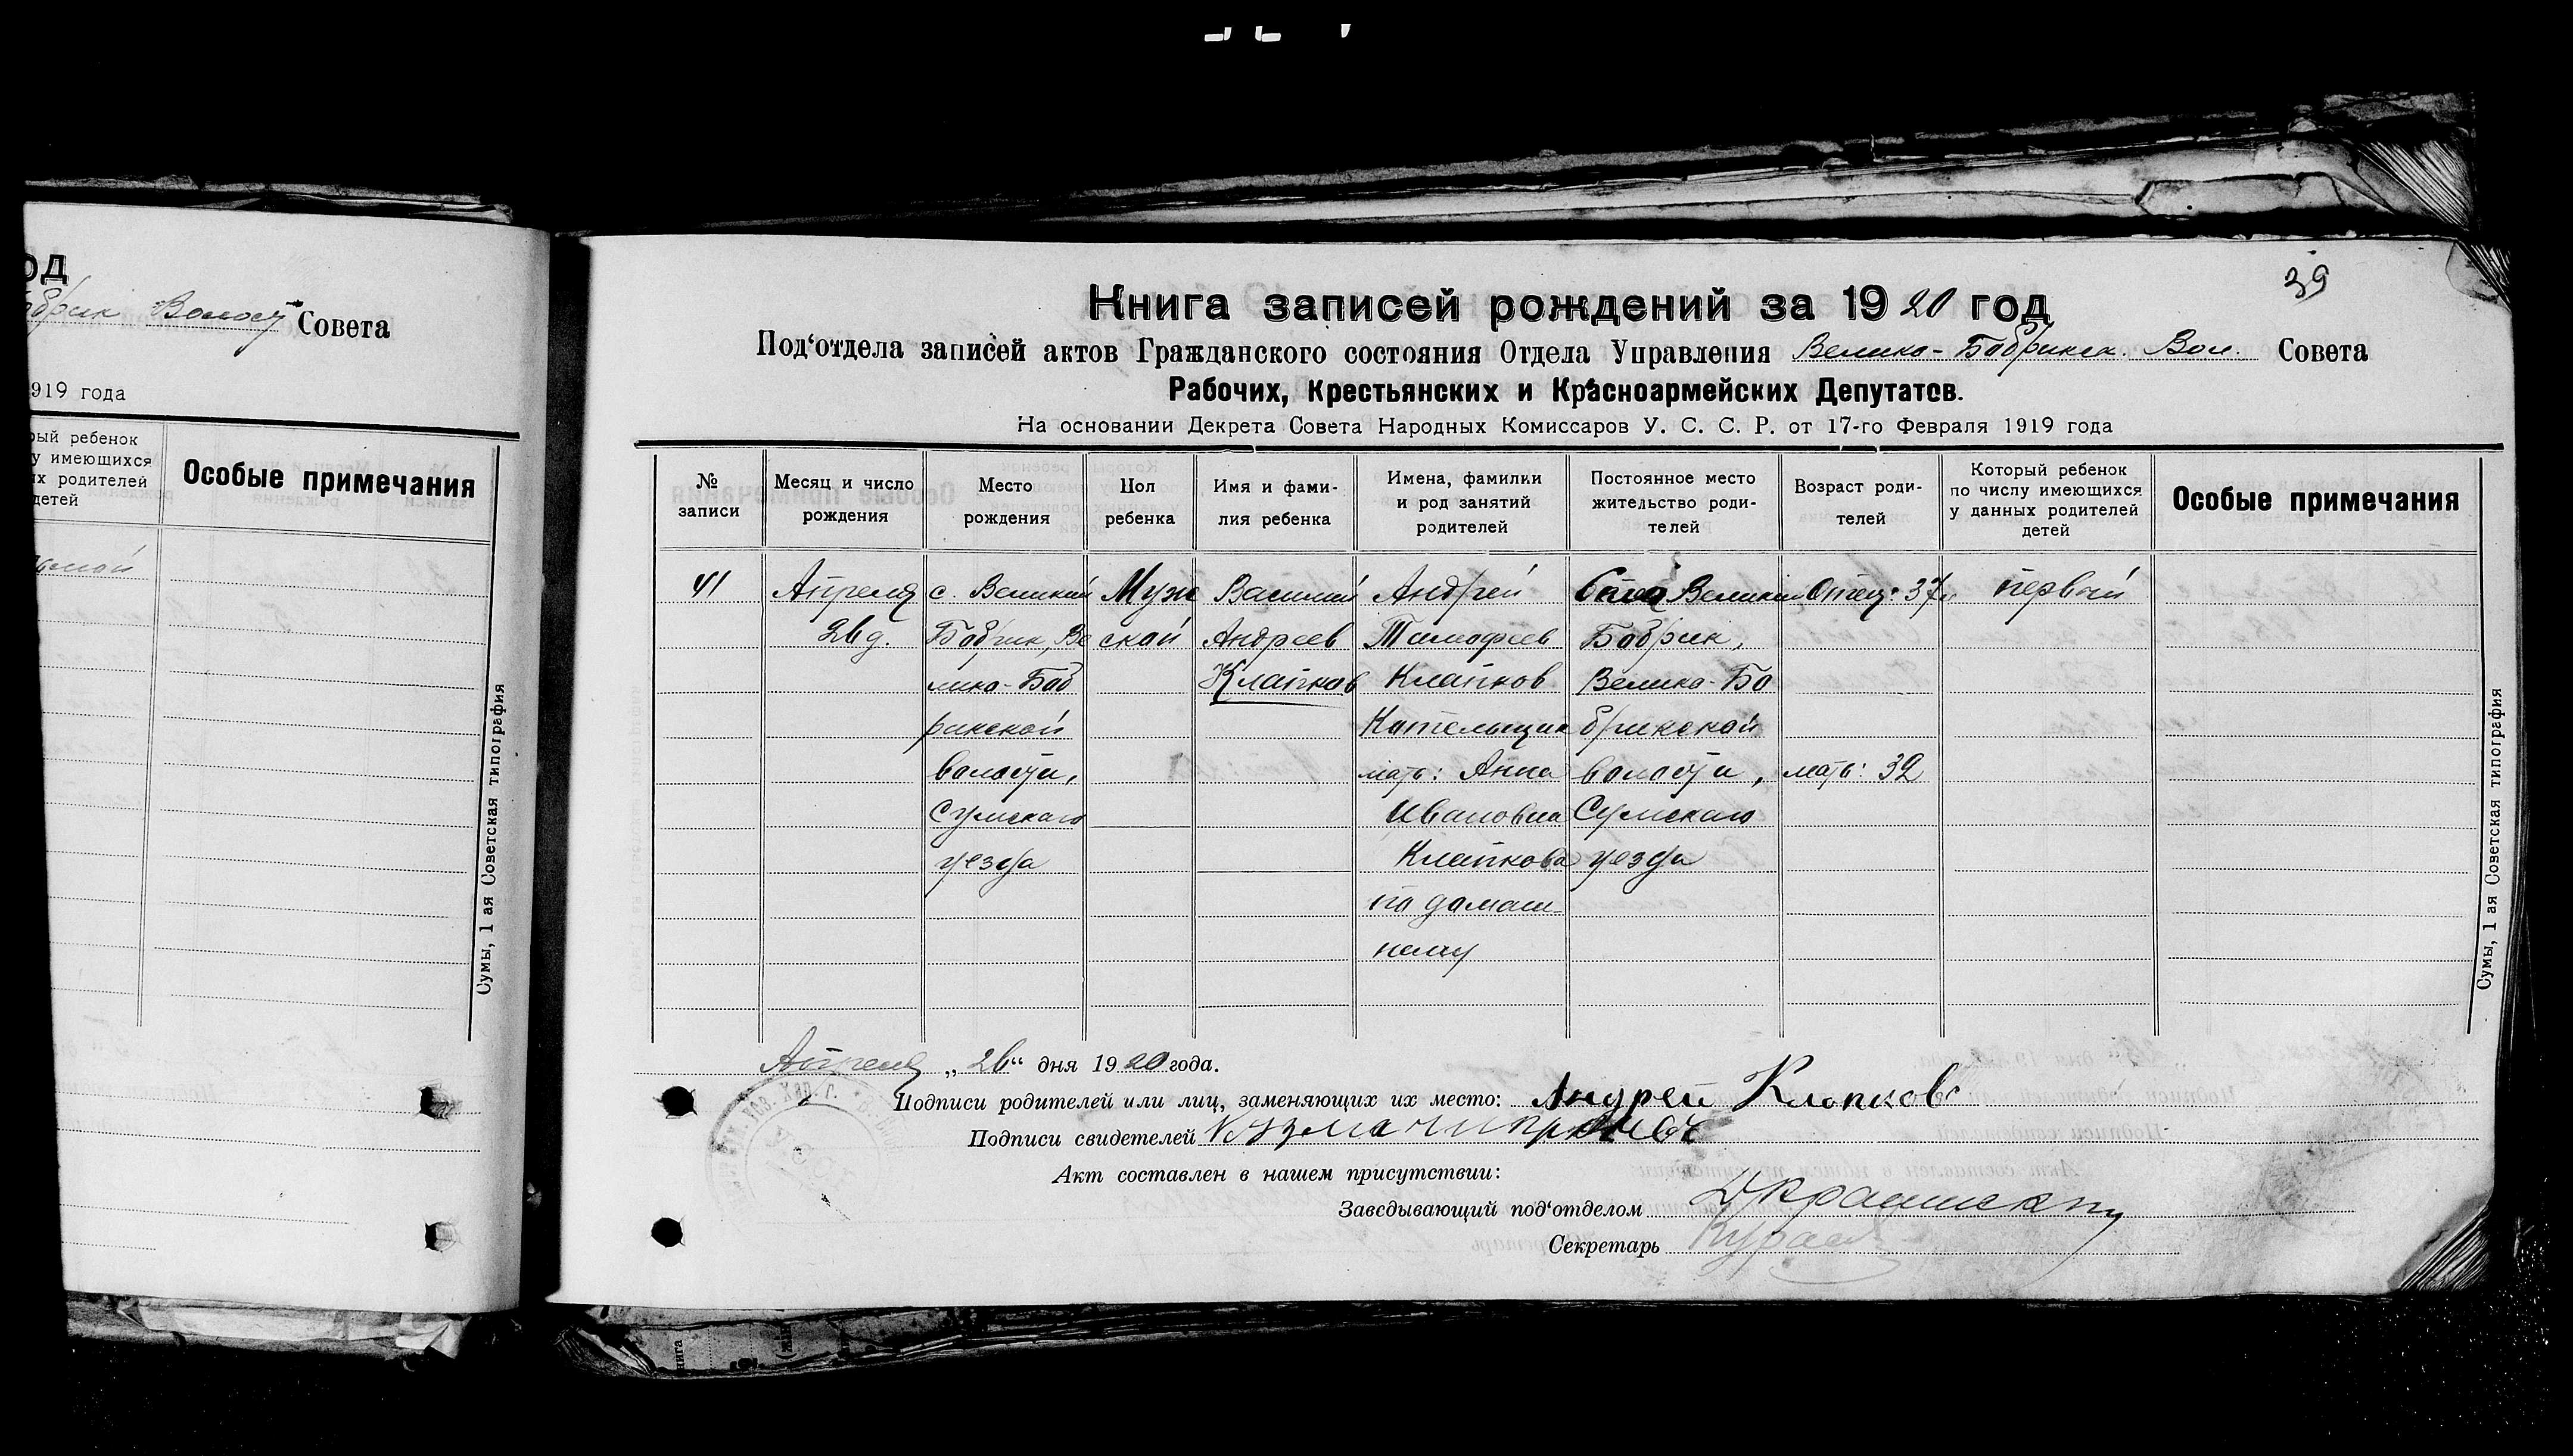 од
Бобрик Волост Совета
919 года
рый ребенок
у имеющихся
их родителей
детей
Особые примечания
Сумы, 1 ая Советская типография
39
Книга записей рождений за 1920 год
Под‘отдела записей актов Гражданского состояния Отдела Управления Велико-Бобрикск. Вол. Совета
Рабочих, Крестьянских и Красноармейских Депутатов.
На основании Декрета Совета Народных Комиссаров У. С. С. Р. от 17-го Февраля 1919 года
№ записи
Месяц и число рождения
Место рождения
Пол ребенка
Имя и фами-
лия ребенка
Имена, фамилии
и род занятий
родителей
Постоянное место
жительство роди-
телей
Возраст роди-
телей
Который ребенок
по числу имеющихся
у данных родителей
детей
Особые примечания
41
Апреля
26 д.
с. Великий
Бобрик, Ве
лико-Боб
рикской
волости,
Сумскаго
уезда
Муж
ской
Василий
Андреев
Клапков
Андрей
Тимофеев
Клапков
Котельщик
мать: Анна
Ивановна
Клапкова
по домаш
нему
Великий
Бобрик,
Велико-Бо
брикской
волости,
Сумскаго
уезда
Отец: 37
мать: 32
первый
Сумы, 1 ая Советская типография
Апреля „26“ дня 1920 года.
Подписи родителей или лиц, заменяющих их место: Андрей Клопков
Подписи свидетелей Кузма
Акт составлен в нашем присутствии:
Заведывающий под‘отделом
Секретарь